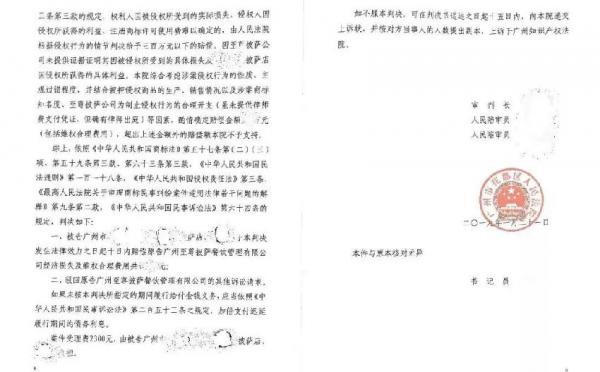 二条第三款的规定，权利人因被侵权所受到的实际损失、侵权人因
侵权所获得的利益、注册商标许可使用费难以确定的，由人民法院
根据侵权行为的情节判决给予三百万元以下的赔偿。因至尊披萨公
司未提供证据证明其因被侵权所受到的具体损失及 披萨店
因侵权所获得的具体利益，本院综合考虑涉案侵权行为的性质、主
观过错程度，并结合被控侵权商品的生产、销售情况以及涉案商标
知名度、至尊披萨公司为制止侵权行为的合理开支（虽未提供律师
费支付凭证，但确有律师出庭）等因素，酌情确定赔偿金额 万元
（包括维权合理费用），超出上述金额外的赔偿额本院不予支持。
综上，依照《中华人民共和国商标法》第五十七条第（二）（三）
项、第五十九条第三款、第六十三条第三款，《中华人民共和国民
法通则》第一百一十八条，《中华人民共和国侵权责任法》第三条，
《最高人民法院关于审理商标民事纠纷案件适用法律若干问题的解
释》第九条第二款，《中华人民共和国民事诉讼法》第六十四条的规
定，判决如下：
一、被告广州市 披萨店 于本判决
发生法律效力之日起十日内赔偿原告广州至尊披萨餐饮管理有限公
司经济损失及维权合理费用共
二、驳回原告广州至尊披萨餐饮管理有限公司的其他诉讼请求。
如果未按本判决所指定的期间履行给付金钱义务，应当依照《中
华人民共和国民事诉讼法》第二百五十三条之规定，加倍支付迟延
履行期间的债务利息。
案件受理费2300元，由被告广州 披萨店
负担。
如不服本判决，可在判决书送达之日起十五日内，向本院递交
上诉状，并按对方当事人的人数提出副本，上诉于广州知识产权法
院。
审判长
人民陪审员
人民陪审员
二〇一九年一月二十一日
本件与原本核对无异
书记员